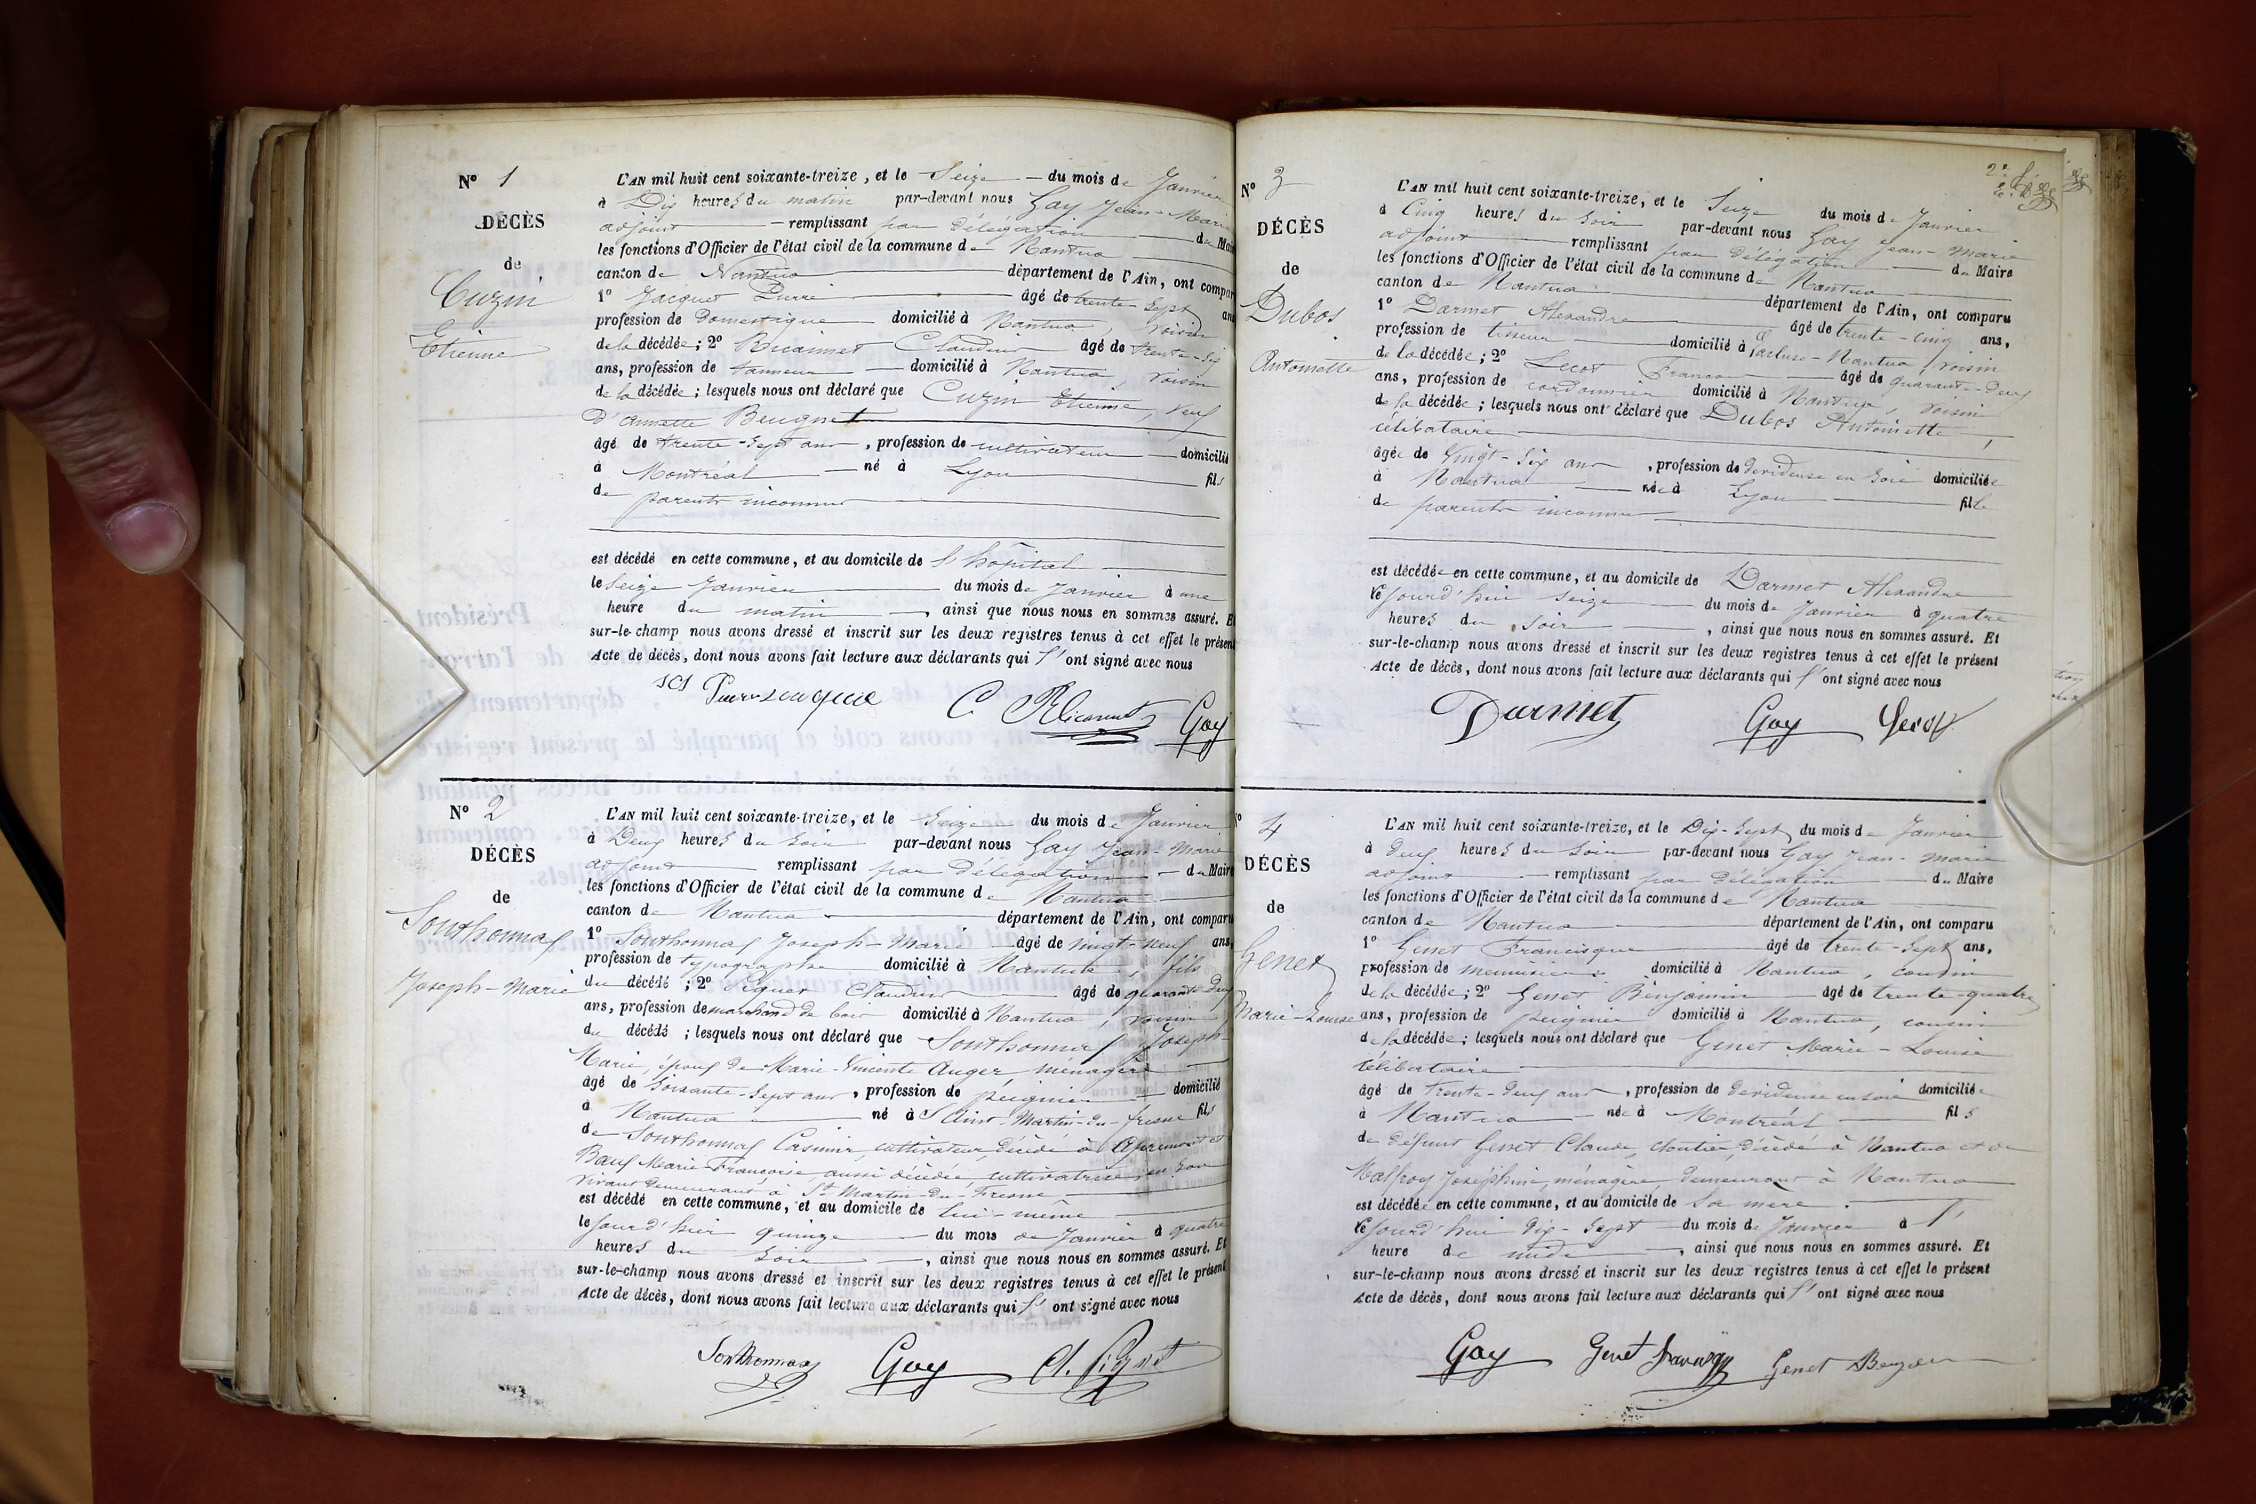 N° 1
DÉCÈS
de
Cuzin
Etienne
L'AN mil huit cent soixante-treize, et le Seize du mois de Janvier
à Dix heures du matin par-devant nous Gay Jean-Marie
adjoint remplissant par délégation du Maire
les fonctions d'Officier de l'état civil de la commune de Nantua
canton de Nantua département de l'Ain, ont compar
1° Jacquet Pierre âgé de trente-sept ans
profession de domestique domicilié à Nantua, voisin
de la décédée; 2° Claudius âgé de trente-six
ans, profession de tanneur domicilié à Nantua, voisin
de la décédée; lesquels nous ont déclaré que Cuzin Etienne, veuf
d'annette Beugnet
âgé de trente-sept ans, profession de cultivateur domicilié
à Montréal né à Lyon fils
de parents inconnus
est décédé en cette commune, et au domicile de l'hôpital
le Seize Janvier du mois de Janvier à une
heure du matin, ainsi que nous nous en sommes assuré. Et
sur-le-champ nous avons dressé et inscrit sur les deux registres tenus à cet effet le présent
Acte de décès, dont nous avons fait lecture aux déclarants qui l'ont signé avec nous
C Gay
N° 2
DÉCÈS
de
Sonthonnax
Joseph-Marie
L'AN mil huit cent soixante-treize, et le Seize du mois de Janvier
à Deux heures du Soir par-devant nous Gay Jean-Marie
adjoint remplissant par délégation du Maire
les fonctions d'Officier de l'état civil de la commune de Nantua
canton de Nantua département de l'Ain, ont comparu
1° Sonthonnax Joseph-Marie âgé de vingt-neuf ans,
profession de typographe domicilié à Nantua, fils
du décédé; 2° Piquet Claudius âgé de quarante-deux
ans, profession de marchand de bois domicilié à Nantua, voisin
du décédé; lesquels nous ont déclaré que Sonthonnax Joseph-
Marie, époux de Marie-Vincente Auger, ménagère
âgé de soixante-sept ans, profession de peignier domicilié
à Nantua né à Saint-Martin-du-fresne fils
de Sonthonnax Casimir, cultivateur, décédé à Apremont et
Marie Françoise, aussi décédée, cultivatrice, en son
vivant demeurant à St Martin-du-Fresne
est décédé en cette commune, et au domicile de lui-même
le jourd'hier quinze du mois de Janvier à quatre
heures du Soir, ainsi que nous nous en sommes assuré. Et
sur-le-champ nous avons dressé et inscrit sur les deux registres tenus à cet effet le présent
Acte de décès, dont nous avons fait lecture aux déclarants qui l'ont signé avec nous
Sonthonnax Gay Cl. Piquet
N° 3
DÉCÈS
de
Dubos
Antoinette
L'AN mil huit cent soixante-treize, et le Seize du mois de Janvier
à Cinq heures du Soir par-devant nous Gay Jean-Marie
adjoint remplissant par délégation du Maire
les fonctions d'Officier de l'état civil de la commune de Nantua
canton de Nantua département de l'Ain, ont comparu
1° Darmet Alexandre âgé de trente-cinq ans,
profession de tisseur domicilié à Nantua, voisin
de la décédée; 2° Lecot François âgé de quarante-deux
ans, profession de cordonnier domicilié à Nantua, voisin
de la décédée; lesquels nous ont déclaré que Dubos Antoinette,
célibataire
âgée de Vingt-six ans, profession de devideuse en Soie domiciliée
à Nantua née à Lyon fille
de parents inconnus
est décédée en cette commune, et au domicile de Darmet Alexandre
le jourd'hui seize du mois de Janvier à quatre
heures du Soir, ainsi que nous nous en sommes assuré. Et
sur-le-champ nous avons dressé et inscrit sur les deux registres tenus à cet effet le présent
Acte de décès, dont nous avons fait lecture aux déclarants qui l'ont signé avec nous
Darmet Gay Lecot
N° 4
DÉCÈS
de
Genet
Marie-Louise
L'AN mil huit cent soixante-treize, et le Dix-Sept du mois de Janvier
à Deux heures du Soir par-devant nous Gay Jean-Marie
adjoint remplissant par délégation du Maire
les fonctions d'Officier de l'état civil de la commune de Nantua
canton de Nantua département de l'Ain, ont comparu
1° Genet Francisque âgé de trente-sept ans,
profession de menuisier domicilié à Nantua, cousin
de la décédée; 2° Genet Benjamin âgé de trente-quatre
ans, profession de peignier domicilié à Nantua, cousin
de la décédée; lesquels nous ont déclaré que Genet Marie-Louise
célibataire
âgé de trente-deux ans, profession de devideuse en soie domiciliée
à Nantua née à Montréal fils
de défunt Genet Claude, cloutier, décédé à Nantua et de
Malfroy Joséphine, ménagère, demeurant à Nantua
est décédée en cette commune, et au domicile de Sa mère
le jourd'hui Dix-Sept du mois de Janvier à l'
heure de midi, ainsi que nous nous en sommes assuré. Et
sur-le-champ nous avons dressé et inscrit sur les deux registres tenus à cet effet le présent
Acte de décès, dont nous avons fait lecture aux déclarants qui l'ont signé avec nous
Gay Genet Genet